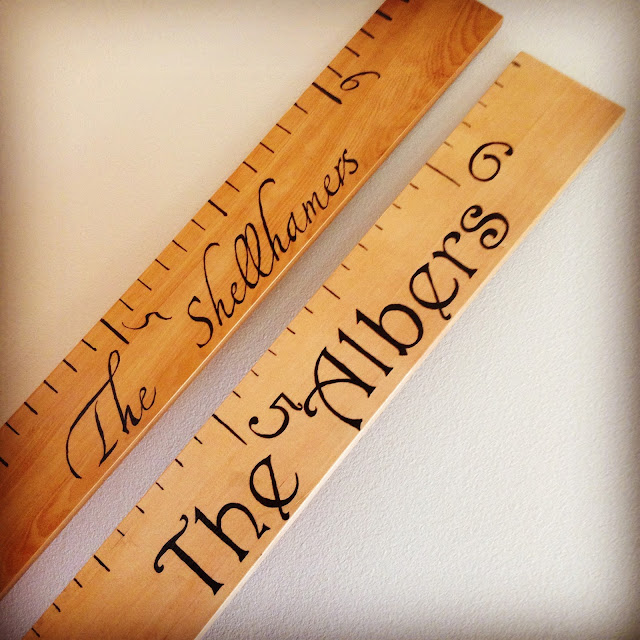 6
5
The Shellhamers
6
5
The Albers